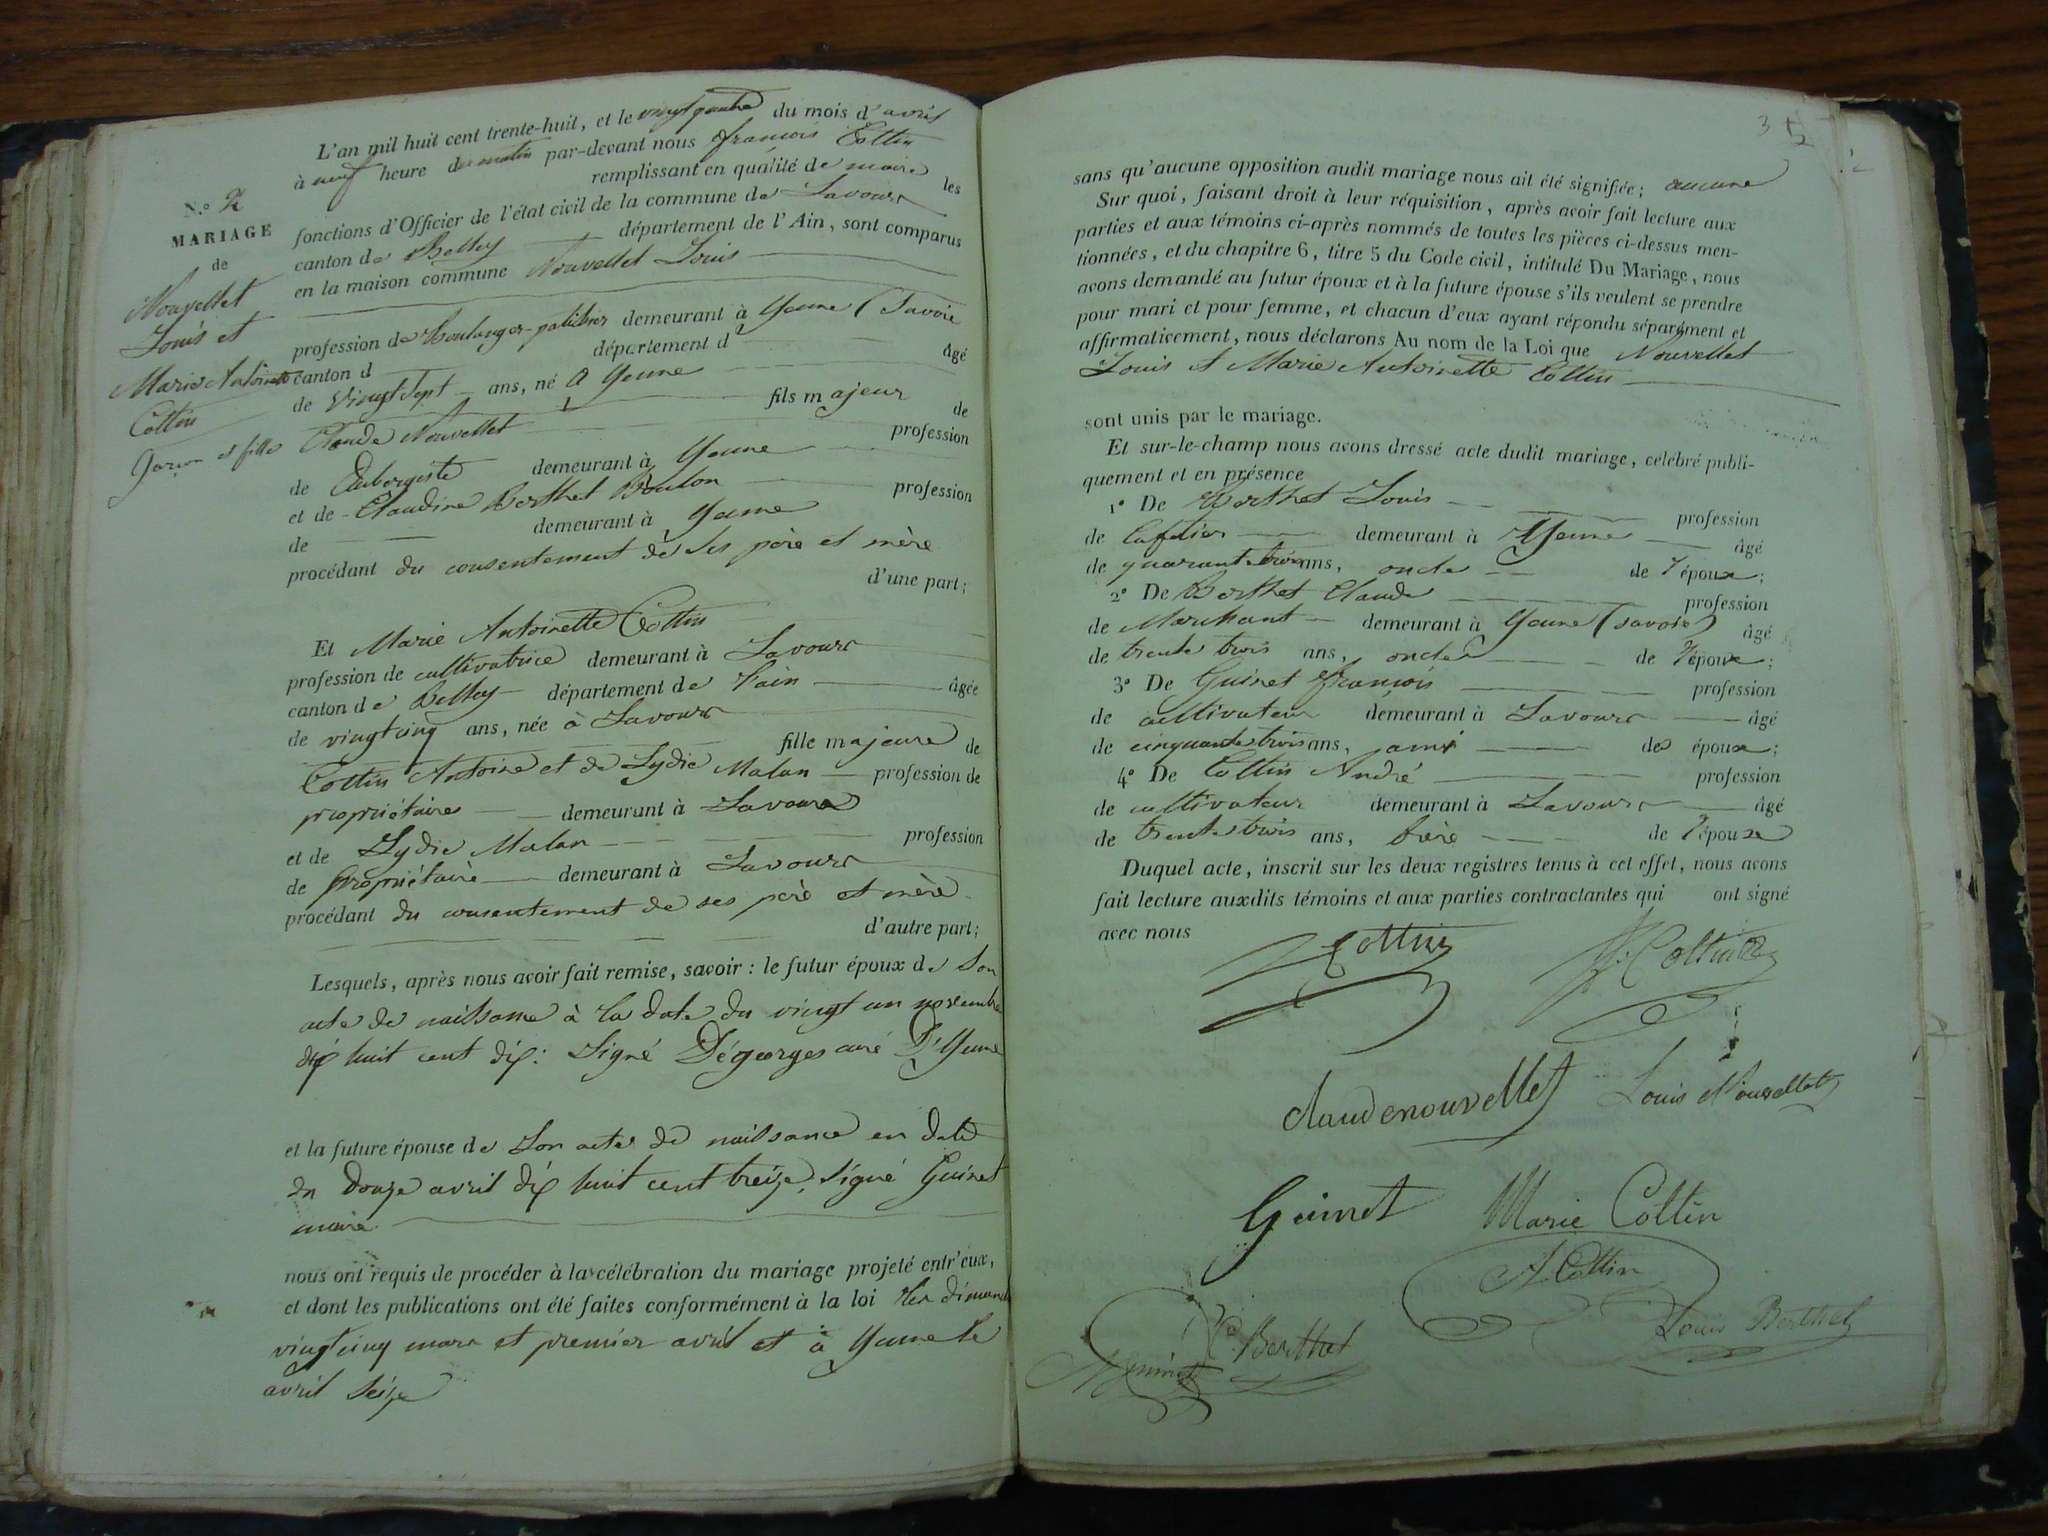 L'an mil huit cent trente-huit, et le vingt quatre du mois d'avril
à neuf heure du matin par-devant nous françois Cottin
remplissant en qualité de maire les
fonctions d'Officier de l'état civil de la commune de Lavours
canton de Belley département de l'Ain, sont comparus
en la maison commune Nouvellet Louis
N.º 2
MARIAGE
de
Nouvellet
Louis et
Marie Antoinette
Cottin
garçon et fille
profession de Boulanger demeurant à Yenne (Savoie
canton d département d âgé
de vingt sept ans, né à Yenne
fils majeur de
Claude Nouvellet profession
de Aubergiste demeurant à Yenne
et de Claudine Berthet profession
de demeurant à Yenne
procédant du consentement de ses père et mère
d'une part;
Et Marie Antoinette Cottin
profession de cultivatrice demeurant à Lavours
canton de Belley département de l'ain âgée
de vingt cinq ans, née à Lavours
fille majeure de
Cottin Antoine et de Lydie Malan profession de
propriétaires demeurant à Lavours
et de Lydie Malan profession
de propriétaire demeurant à Lavours
procédant du consentement de ses père et mère
d'autre part;
Lesquels, après nous avoir fait remise, savoir : le futur époux de son
acte de naissance à la date du vingt un novembre
dix huit cent dix: signé Dégeorges curé D'Yenne
et la future épouse de son acte de naissance en date
du douze avril dix huit cent treize, signé Guinet
maire
nous ont requis de procéder à la célébration du mariage projeté entr'eux,
et dont les publications ont été faites conformément à la loi les dimanches
vingt cinq mars et premier avril et à Yenne le
avril seize
3
sans qu'aucune opposition audit mariage nous ait été signifiée; aucune
Sur quoi, faisant droit à leur réquisition, après avoir fait lecture aux
parties et aux témoins ci-après nommés de toutes les pièces ci-dessus men-
tionnées, et du chapitre 6, titre 5 du Code civil, intitulé Du Mariage, nous
avons demandé au futur époux et à la future épouse s'ils veulent se prendre
pour mari et pour femme, et chacun d'eux ayant répondu séparément et
affirmativement, nous déclarons Au nom de la Loi que Nouvellet
Louis et Marie Antoinette Cottin
sont unis par le mariage.
Et sur-le-champ nous avons dressé acte dudit mariage, célébré publi-
quement et en présence
1º De Berthet Louis profession
de Cafetier demeurant à Yenne âgé
de quarante trois ans, oncle de l'époux;
2º De Berthet Claude profession
de Marchant demeurant à Yenne (savoie) âgé
de trente trois ans, oncle de l'époux;
3º De Guinet françois profession
de cultivateur demeurant à Lavours âgé
de cinquante trois ans, ami des époux;
4º De Cottin André profession
de cultivateur demeurant à Lavours âgé
de trente trois ans, frère de l'épouse
Duquel acte, inscrit sur les deux registres tenus à cet effet, nous avons
fait lecture auxdits témoins et aux parties contractantes qui ont signé
avec nous
Cottin Cottin
claudenouvellet Louis Nouvellet
Guinet Marie Cottin
A. Cottin
Berthet Louis Berthet